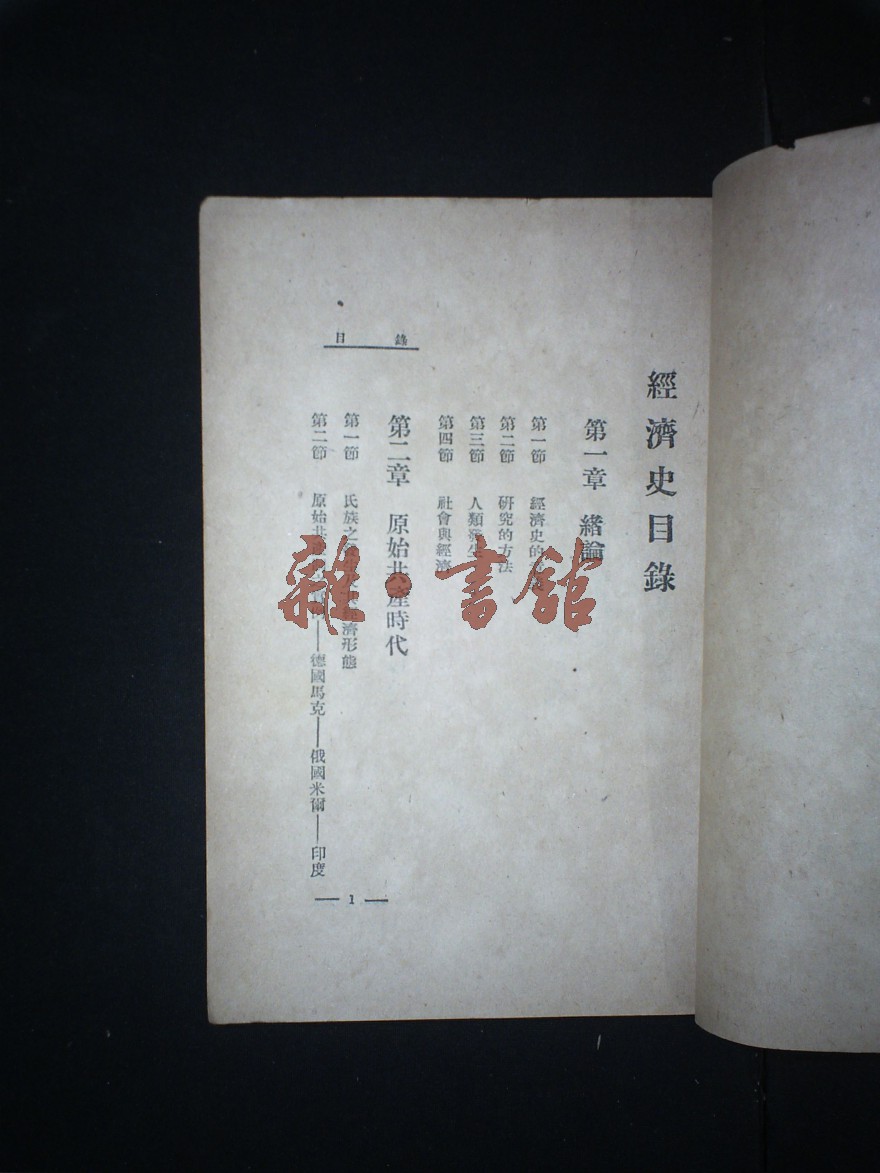 經濟史目錄
第一章 緒論
第一節 經濟史的
第二節 研究的方法
第三節 人類發生
第四節 社會與經濟
第二章 原始共產時代
第一節 氏族之 濟形態
第二節 原始共 ——德國馬克——俄國米爾——印度
目 錄
— 1 —
雜·書館